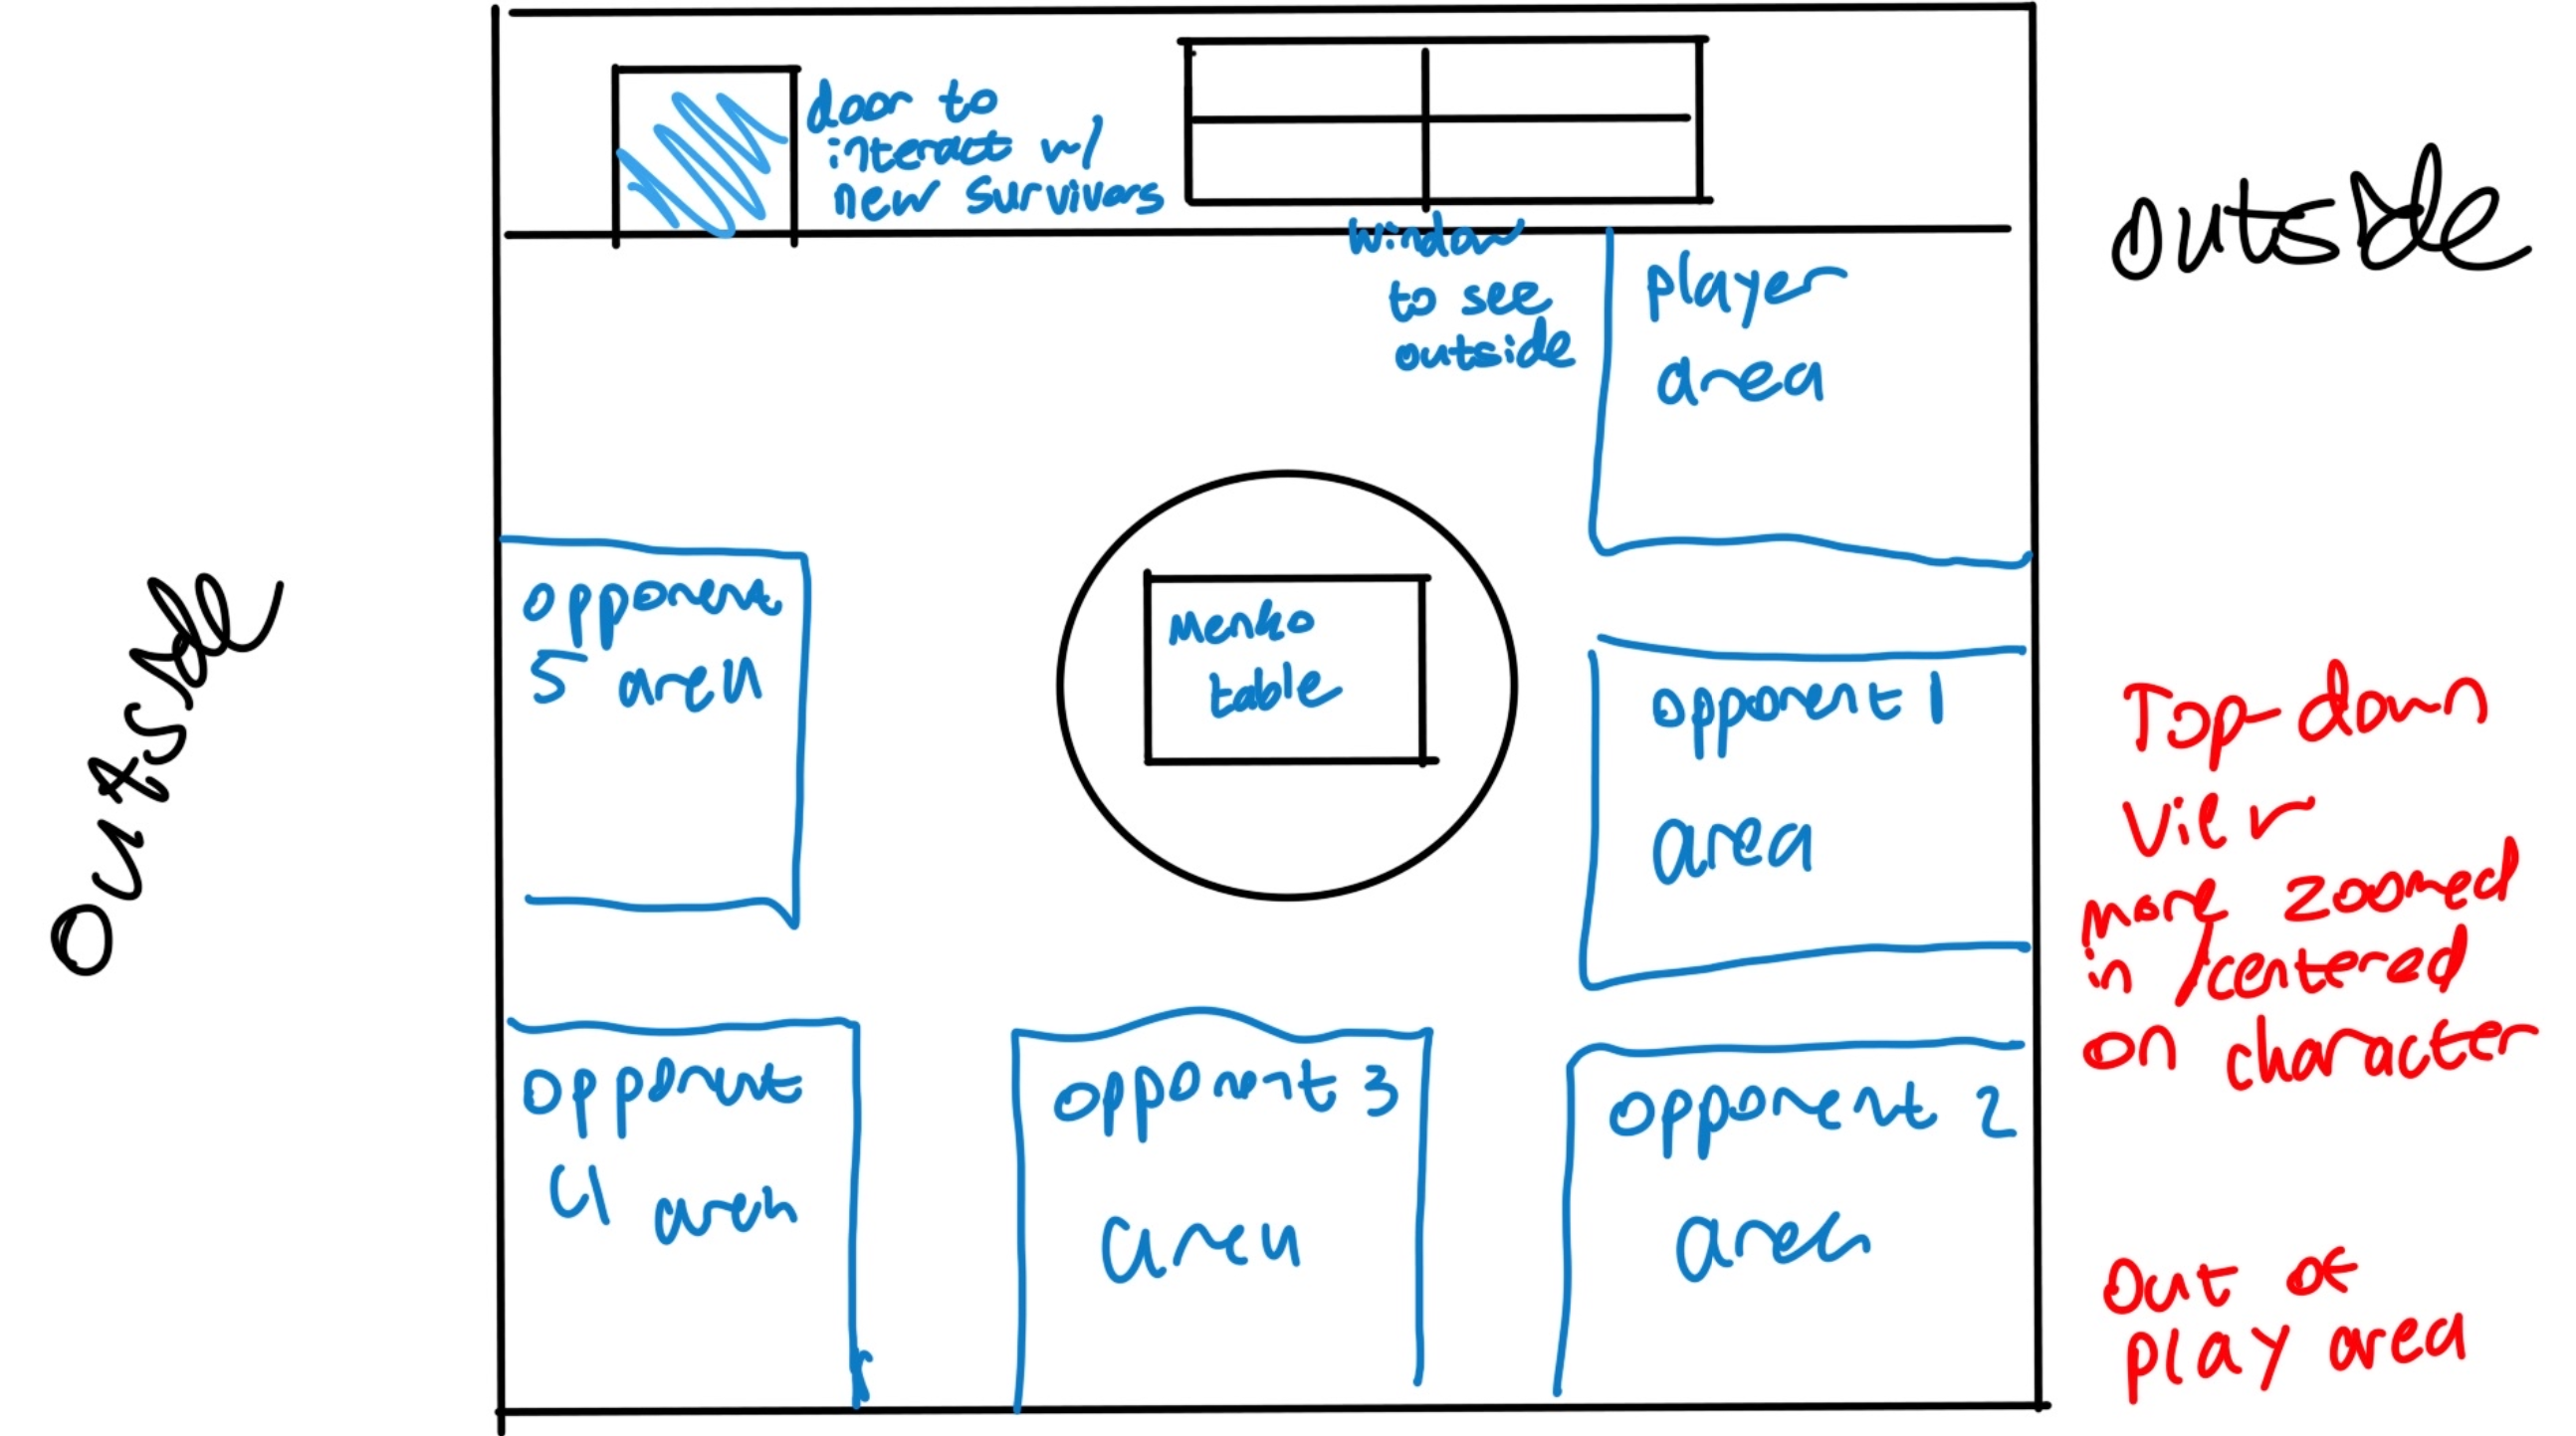 door to
interact w/
new survivors
window
to see
outside
player
area
outside
outside
opponent
5 area
Menko
table
opponent 1
area
Top-down
view
more zoomed
in /centered
on character
opponent
4 area
opponent 3
area
opponent 2
area
out of
play area